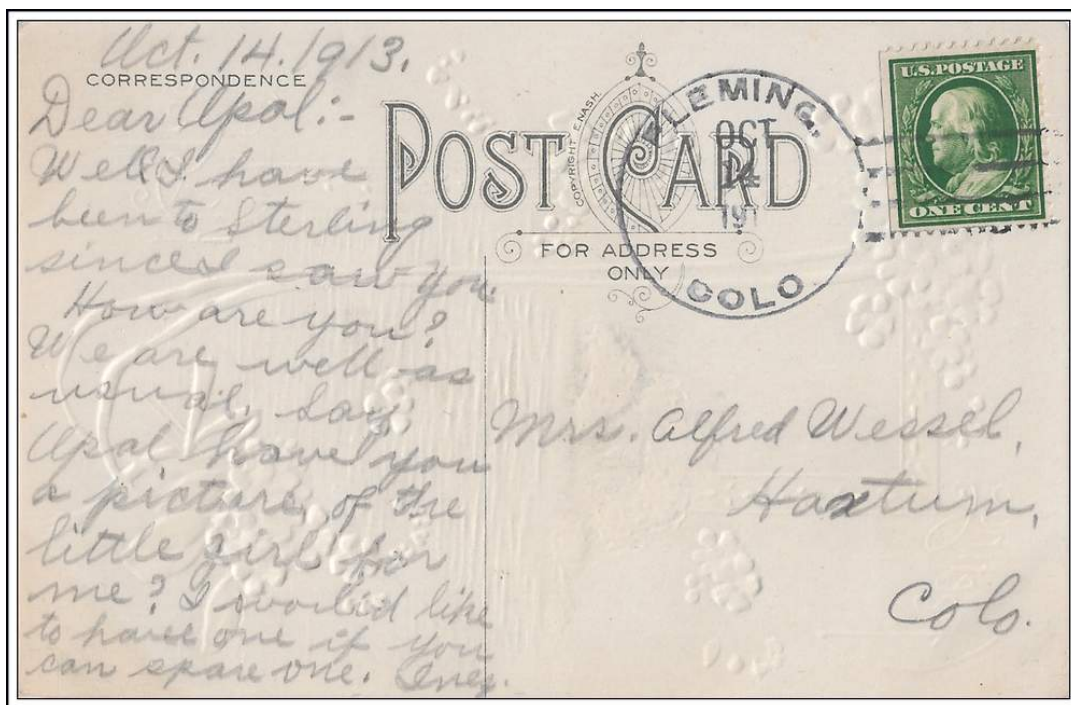 Oct. 14. 1913.
CORRESPONDENCE
Dear Opal:-
Well I have
been to Sterling
since I saw you.
How are you?
We are well as
usual. Say,
Opal, have you
a picture of the
little girl for
me? I would like
to have one if you
can spare one. Inez.
POST CARD
COPYRIGHT E. NASH.
FOR ADDRESS
ONLY
FLEMING,
OCT
14
191
COLO.
U.S. POSTAGE
ONE CENT
Mrs. Alfred Wessel,
Haxtum,
Colo.